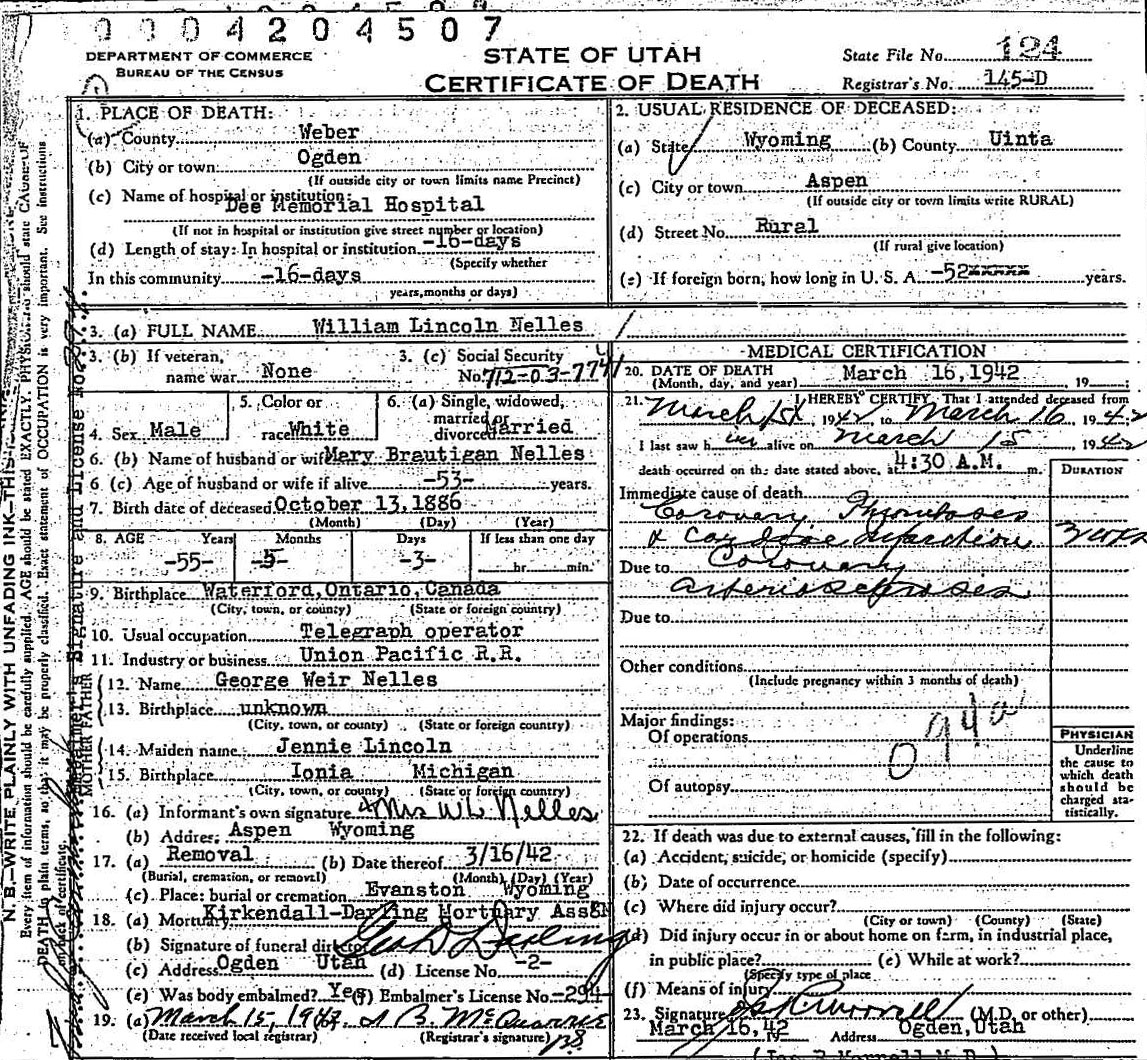 0004204507
DEPARTMENT OF COMMERCE
BUREAU OF THE CENSUS
STATE OF UTAH
CERTIFICATE OF DEATH
State File No. 124
Registrar's No. 145-D
1. PLACE OF DEATH:
(a) County Weber
(b) City or town Ogden
(If outside city or town limits name Precinct)
(c) Name of hospital or institution:
Dee Memorial Hospital
(If not in hospital or institution give street number or location)
(d) Length of stay: In hospital or institution -16-days
(Specify whether
In this community -16-days
years, months or days)
2. USUAL RESIDENCE OF DECEASED:
(a) State Wyoming (b) County Uinta
(c) City or town Aspen
(If outside city or town limits write RURAL)
(d) Street No. Rural
(If rural give location)
(e) If foreign born, how long in U. S. A. -52xxxxx years.
3. (a) FULL NAME William Lincoln Nelles
3. (b) If veteran, name war None
3. (c) Social Security No. 712-03-7741
4. Sex Male
5. Color or race White
6. (a) Single, widowed, married or divorced Married
6. (b) Name of husband or wife Mary Brautigan Nelles
6 (c) Age of husband or wife if alive -53- years.
7. Birth date of deceased October 13,1886
(Month) (Day) (Year)
8. AGE Years Months Days If less than one day
-55- -5- -3- hr. min.
9. Birthplace Waterford, Ontario, Canada
(City, town, or county) (State or foreign country)
10. Usual occupation Telegraph operator
11. Industry or business Union Pacific R.R.
FATHER
12. Name George Weir Nelles
13. Birthplace unknown
(City, town, or county) (State or foreign country)
MOTHER
14. Maiden name Jennie Lincoln
15. Birthplace Ionia Michigan
(City, town, or county) (State or foreign country)
16. (a) Informant's own signature Mrs W L Nelles
(b) Address Aspen Wyoming
17. (a) Removal (b) Date thereof 3/16/42
(Burial, cremation, or removal) (Month) (Day) (Year)
(c) Place: burial or cremation Evanston Wyoming
18. (a) Mortuary Kirkendall-Darling Mortuary Assgn
(b) Signature of funeral director Geo D Darling
(c) Address Ogden Utah (d) License No. -2-
(e) Was body embalmed? Yes (f) Embalmer's License No. -294-
19. (a) March 15, 1942 B. McQuarrie
(Date received local registrar) (Registrar's signature)
MEDICAL CERTIFICATION
20. DATE OF DEATH March 16,1942 19
(Month, day, and year)
21. I HEREBY CERTIFY, That I attended deceased from
March 1st 1942 to March 16 1942
I last saw him alive on March 15 1942
death occurred on the date stated above, at 4:30 A.M. m.
DURATION
Immediate cause of death
Coronary Thromboses
& Cardiac Infarction 3 wks
Due to Coronary
arteriosclerosis
Due to
Other conditions
(Include pregnancy within 3 months of death)
Major findings:
Of operations
094a
Of autopsy
PHYSICIAN
Underline
the cause to
which death
should be
charged sta-
tistically.
22. If death was due to external causes, fill in the following:
(a) Accident, suicide, or homicide (specify)
(b) Date of occurrence
(c) Where did injury occur?
(City or town) (County) (State)
(d) Did injury occur in or about home on farm, in industrial place,
in public place? (e) While at work?
(Specify type of place
(f) Means of injury
23. Signature (M.D. or other)
March 16,42 Address Ogden,Utah
N. B.—WRITE PLAINLY WITH UNFADING INK—THIS
Every item of information should be carefully supplied. AGE should be stated EXACTLY. PHYSICIANS should state CAUSE OF
DEATH in plain terms, so that it may be properly classified. Exact statement of OCCUPATION is very important. See instructions
on back of certificate.
Embalmer's Signature and License No.